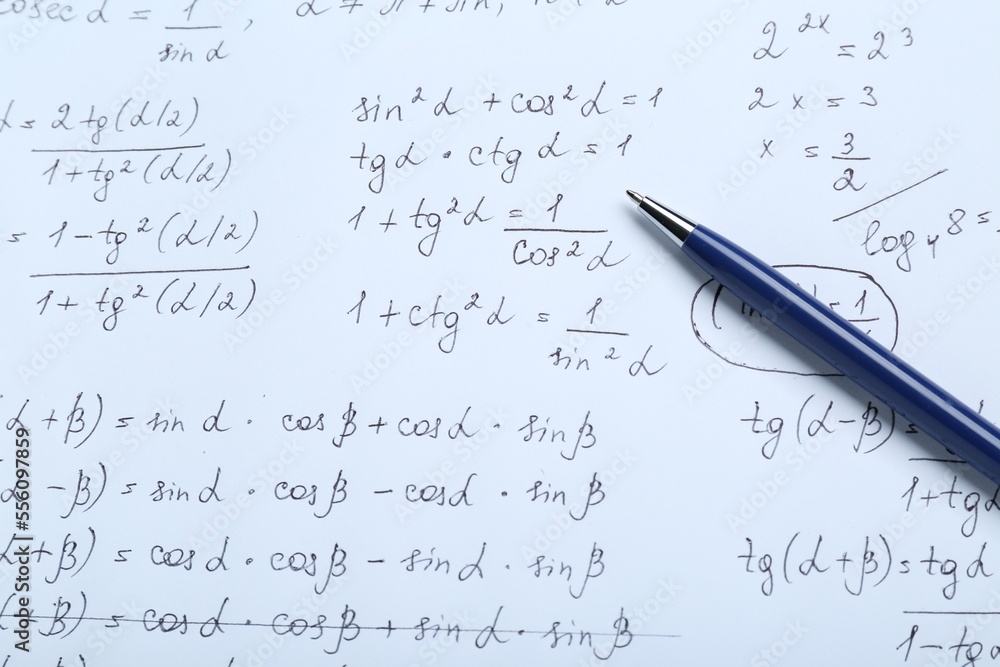 cosec α = 1 / sin α ,
2^2x = 2^3
2 x = 3
x = 3 / 2
log 8 =
= 2 tg (α/2) / 1 + tg² (α/2)
= 1 - tg² (α/2) / 1 + tg² (α/2)
sin² α + cos² α = 1
tg α · ctg α = 1
1 + tg² α = 1 / cos² α
1 + ctg² α = 1 / sin² α
α + β) = sin α · cos β + cos α · sin β
α - β) = sin α · cos β - cos α · sin β
α + β) = cos α · cos β - sin α · sin β
β) = cos α · cos β + sin α · sin β
tg (α - β) =
1 + tg α
tg (α + β) = tg α
1 - tg α
Adobe Stock | #556097859
Adobe Stock